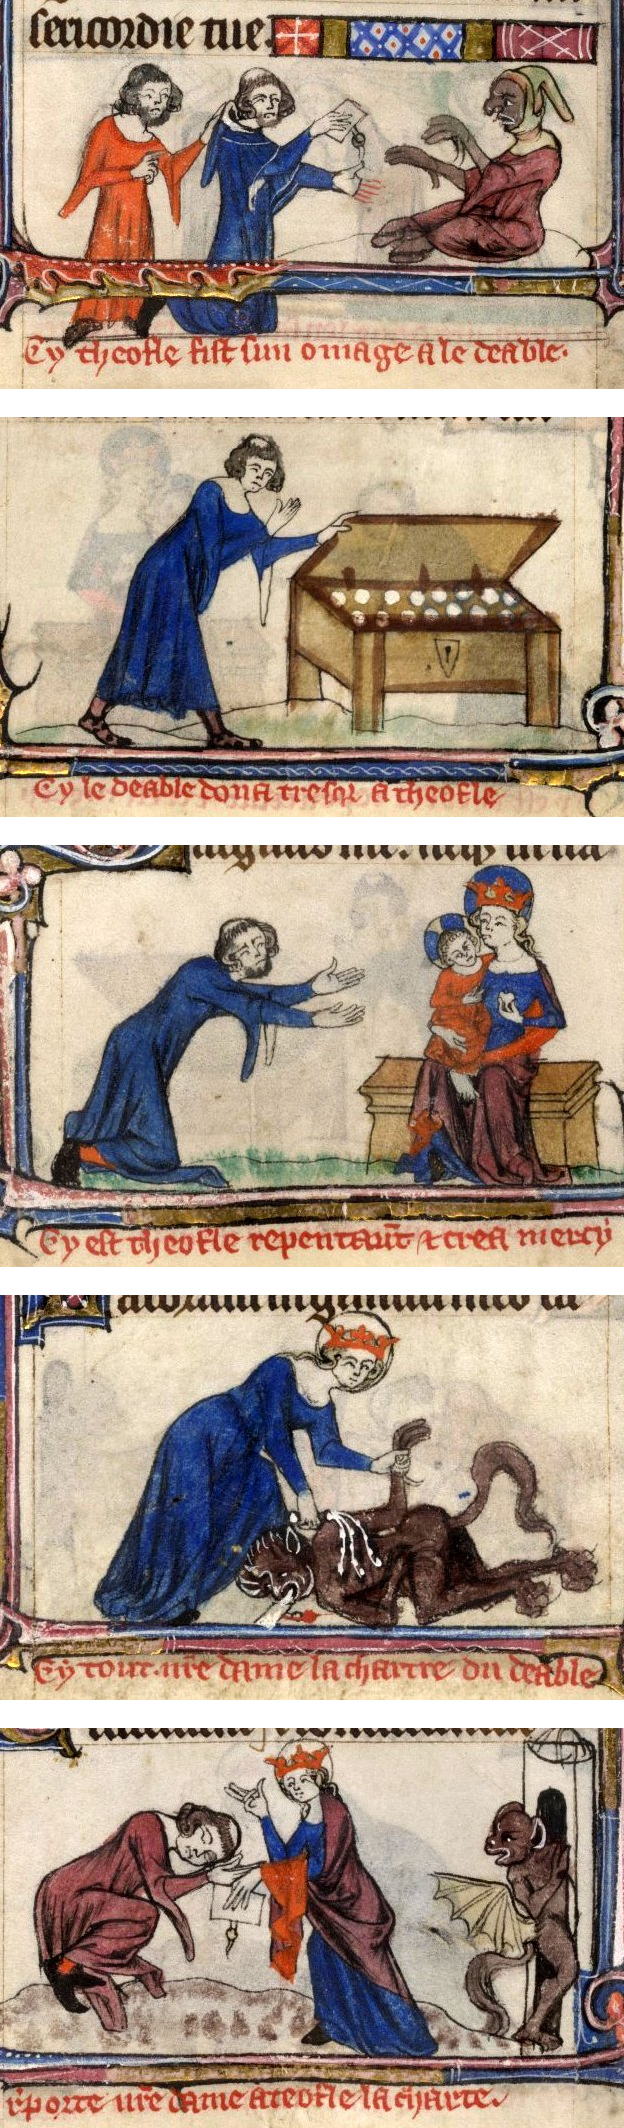 sericordie tue.
Cy theofle fist sun omage a le deable.
Cy le deable dona tresor a theofle
Cy est theofle repentaunt & crea mercy
Cy tout nr̄e dame la chartre du deable
rporte nr̄e dame a teofle la chartre.